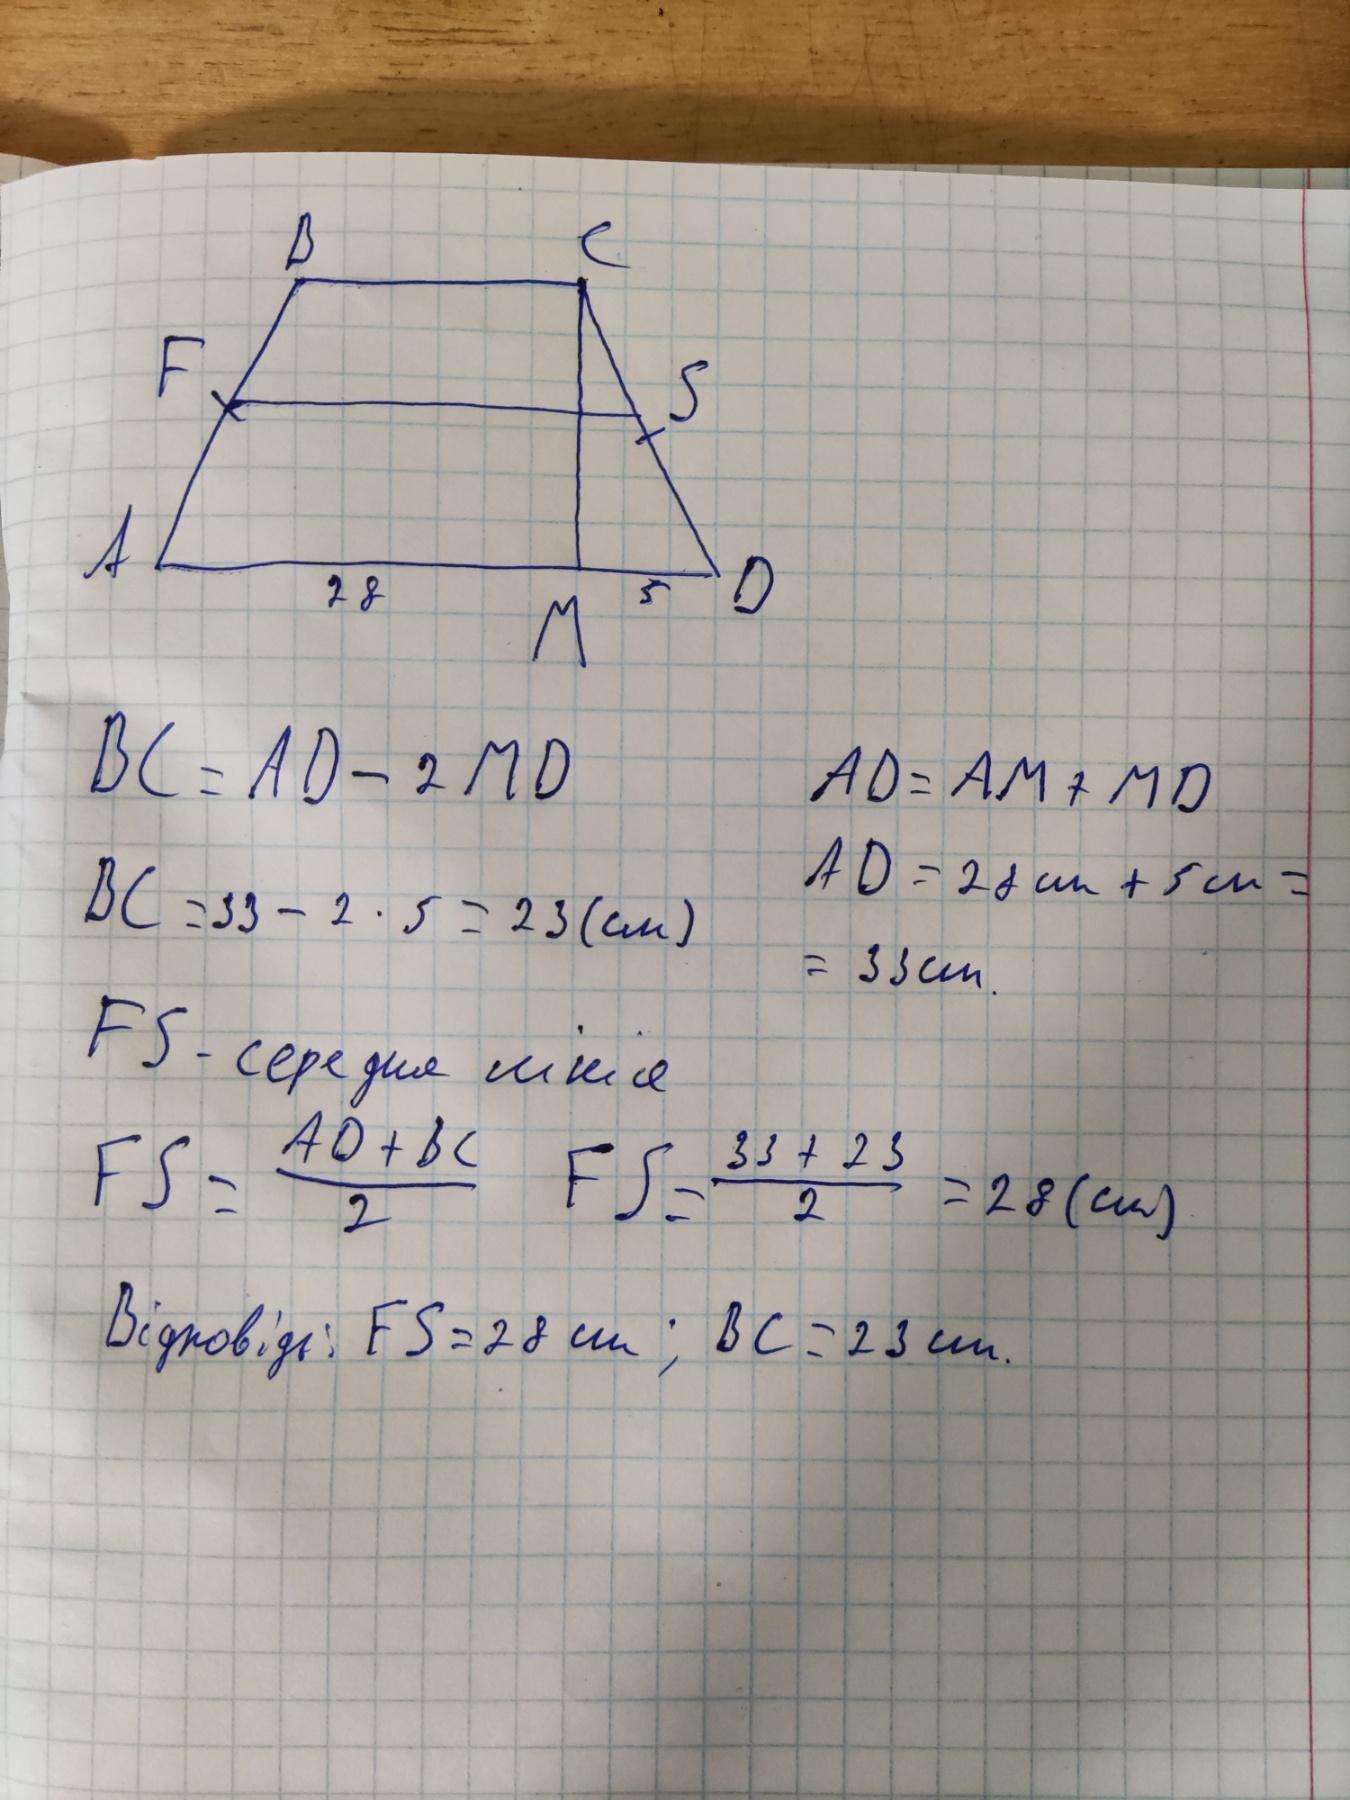 B C
F S
A 28 M 5 D
BC = AD - 2MD
AD = AM + MD
BC = 33 - 2 · 5 = 23 (см)
AD = 28 см + 5 см =
= 33 см.
FS - середня лінія
FS = (AD + BC)/2 FS = (33 + 23)/2 = 28 (см)
Відповідь: FS = 28 см; BC = 23 см.